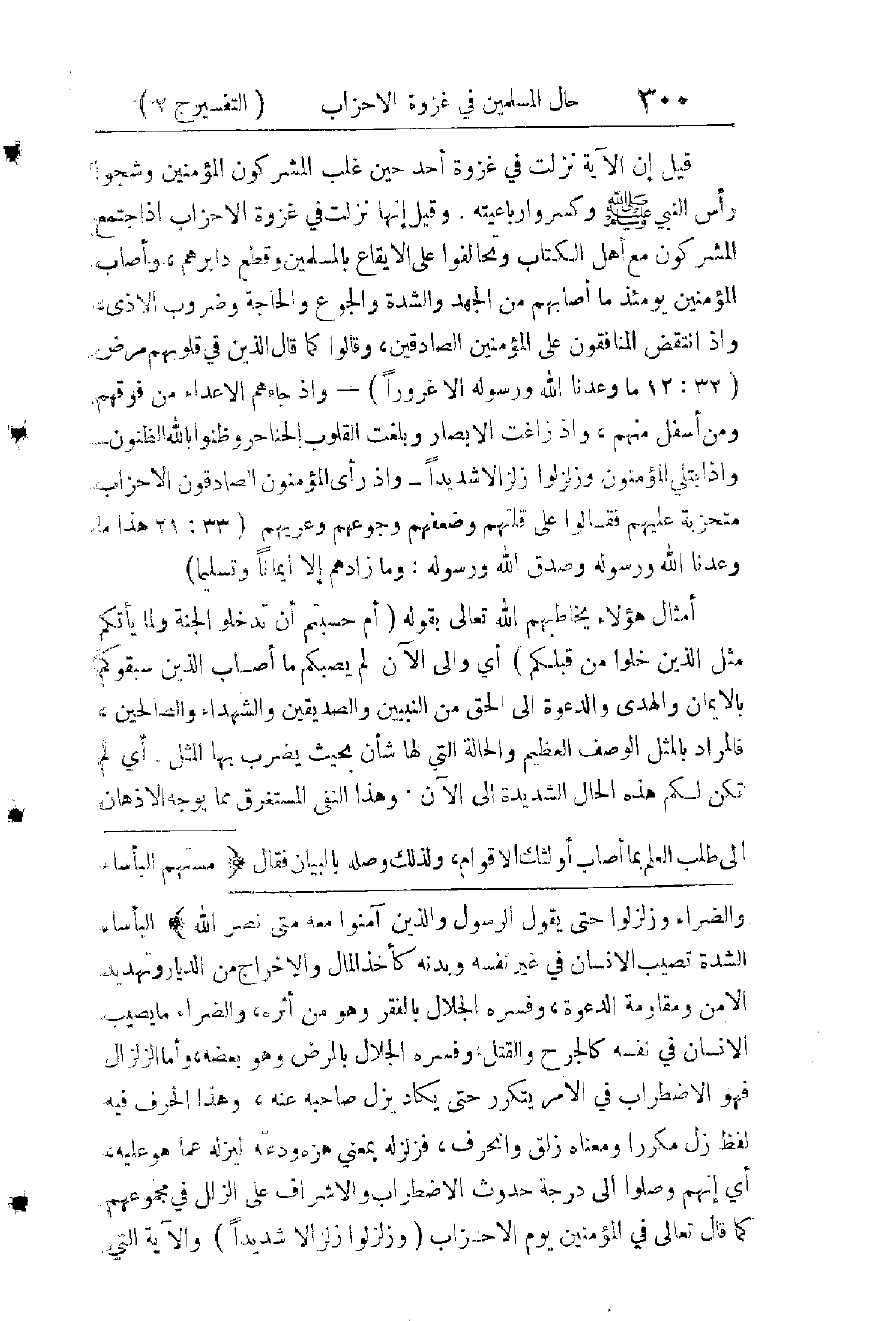 ٣٠٠ حال المسلمين في غزوة الاحزاب ( التفسير ج ٢ )
قيل إن الآية نزلت في غزوة أحد حين غلب المشركون المؤمنين وشجوا
رأس النبي ﷺ وكسروا رباعيته . وقيل إنها نزلت في غزوة الاحزاب اذ اجتمع
المشركون مع أهل الكتاب وتحالفوا على الايقاع بالمسلمين وقطع دابرهم ، وأصاب
المؤمنين يومئذ ما أصابهم من الجهد والشدة والجوع والحاجة وضروب الاذى
واذ انتقض المنافقون على المؤمنين الصادقين، وقالوا كما قال الذين في قلوبهم مرض
( ٣٢ : ١٢ ما وعدنا الله ورسوله الا غروراً ) — واذ جاءهم الاعداء من فوقهم
ومن أسفل منهم ، واذ زاغت الابصار وبلغت القلوب الحناجر وظنوا بالله الظنون —
واذ ابتلي المؤمنون وزلزلوا زلزالا شديداً — واذ رأى المؤمنون الصادقون الاحزاب
متحزبة عليهم فقالوا على قلتهم وضعفهم وجوعهم وعريهم ( ٣٣ : ٢١ هذا ما
وعدنا الله ورسوله وصدق الله ورسوله : وما زادهم إلا ايماناً وتسليما)
أمثال هؤلاء يخاطبهم الله تعالى بقوله ( أم حسبتم أن تدخلو الجنة ولما يأتكم
مثل الذين خلوا من قبلكم ) أي والى الآن لم يصبكم ما أصاب الذين سبقوكم
بالايمان والهدى والدعوة الى الحق من النبيين والصديقين والشهداء والصالحين ،
فالمراد بالمثل الوصف العظيم والحالة التي لها شأن بحيث يضرب بها المثل . أي لم
تكن لكم هذه الحال الشديدة الى الآن . وهذا النفي المستغرق مما يوجه الاذهان
الى طلب العلم بما أصاب أولئك الاقوام، ولذلك وصله بالبيان فقال ﴿ مستهم البأساء
والضراء وزلزلوا حتى يقول الرسول والذين آمنوا معه متى نصر الله ﴾ البأساء
الشدة تصيب الانسان في غير نفسه وبدنه كأخذ المال والاخراج من الديار وتهديد
الامن ومقاومة الدعوة ، وفسره الجلال بالفقر وهو من أثره، والضراء ما يصيب
الانسان في نفسه كالجرح والقتل، وفسره الجلال بالمرض وهو بعضه، وأما الزلزال
فهو الاضطراب في الأمر يتكرر حتى يكاد يزل صاحبه عنه ، وهذا الحرف فيه
لفظ زل مكررا ومعناه زلق وانحرف ، فزلزله بمعنى هزه ودعّه ليزله عما هو عليه،
أي إنهم وصلوا الى درجة حدوث الاضطراب والاشراف على الزلل في مجموعهم
كما قال تعالى في المؤمنين يوم الاحزاب ( وزلزلوا زلزالا شديداً ) والآية التي